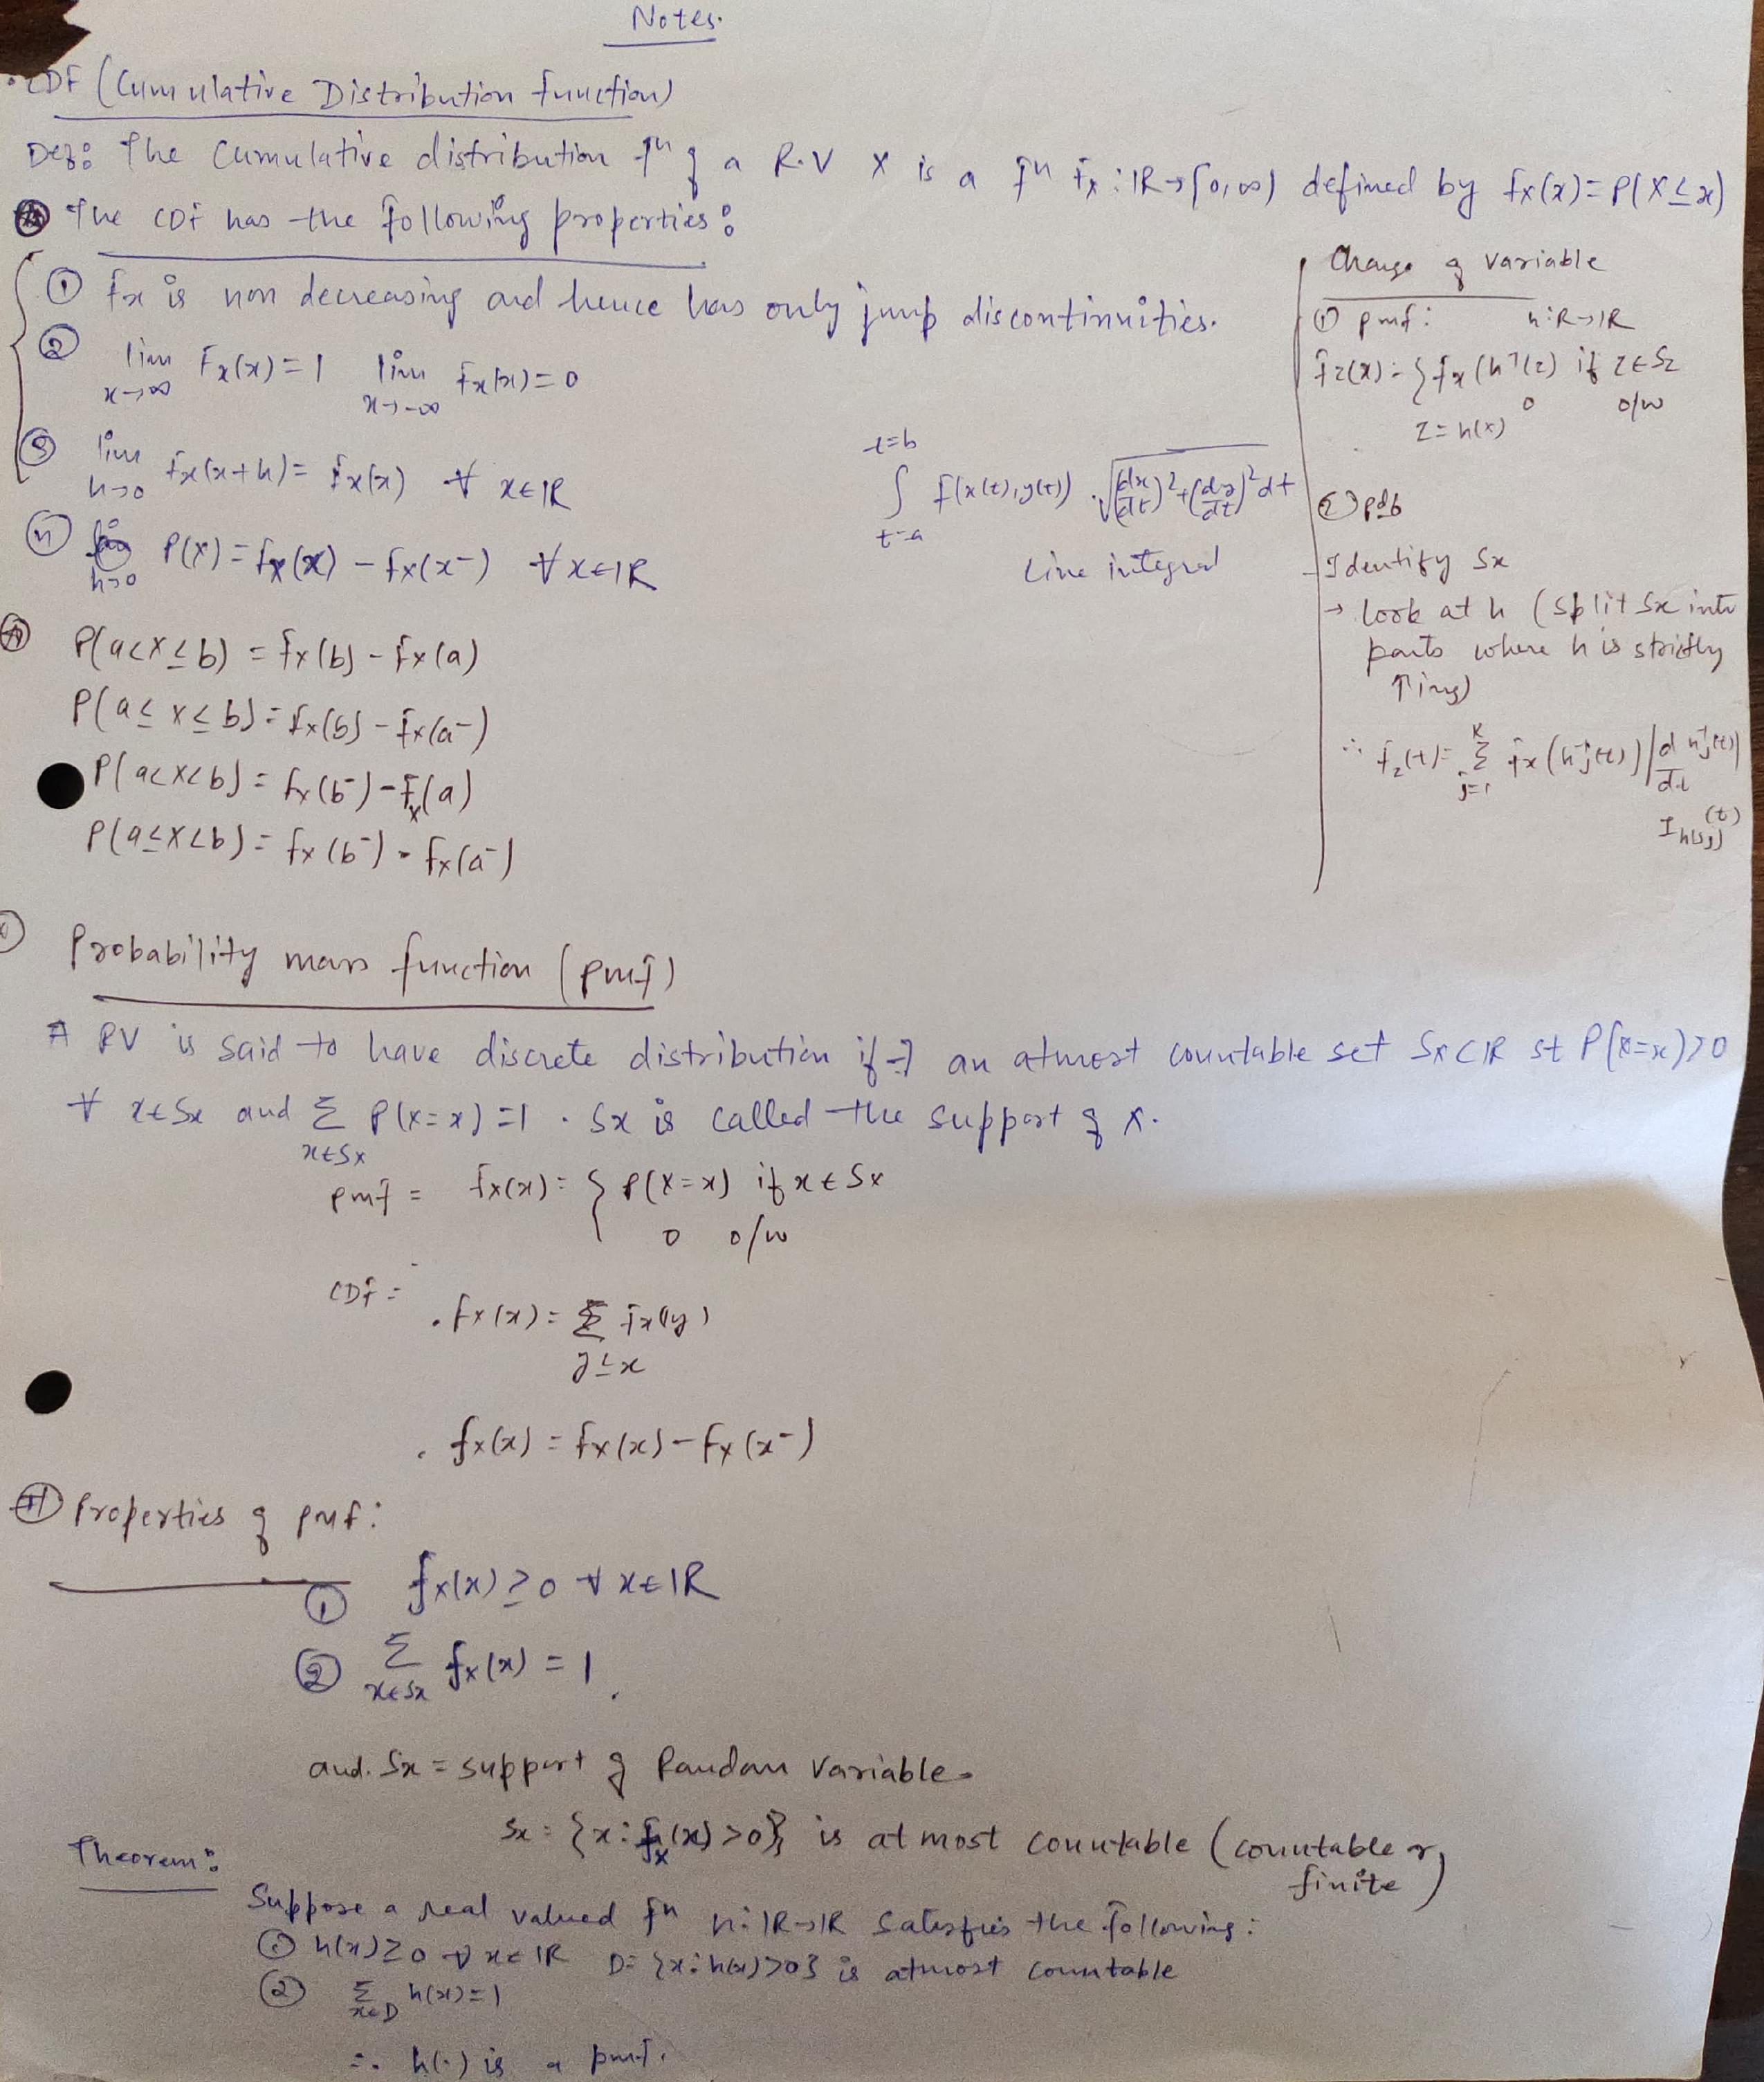 Notes.
• CDF (Cumulative Distribution function)
Def: The Cumulative distribution fn of a R.V X is a fn Fx : IR→[0,∞) defined by Fx(x) = P(X≤x)
The CDF has the following properties:
① Fx is non decreasing and hence has only jump discontinuities.
② lim x→∞ Fx(x) = 1 lim x→-∞ Fx(x) = 0
③ lim h→0 Fx(x+h) = Fx(x) ∀ x∈IR
④ h→0 P(X) = Fx(x) - Fx(x-) ∀ x∈IR
P(a<X≤b) = Fx(b) - Fx(a)
P(a≤X≤b) = Fx(b) - Fx(a-)
P(a<X<b) = Fx(b-) - Fx(a)
P(a≤X<b) = Fx(b-) - Fx(a-)
∫ t=a t=b f(x(t), y(t)) . √(dx/dt)² + (dy/dt)² dt
Line integral
Change of variable
① pmf: h:R→IR
fz(x) = { fx(h⁻¹(z) if z∈Sz
0 o/w
Z = h(x)
② pdf
- Identify Sx
→ look at h (split Sx into
parts where h is strictly
↑ing)
∴ fz(t) = Σ j=1 k fx(hj⁻¹(t)) |d/dt hj⁻¹(t)|
I h(Sj) (t)
Probability mass function (pmf)
A RV is said to have discrete distribution if ∃ an atmost countable set Sx⊂IR st P(X=x)>0
∀ x∈Sx and Σ x∈Sx P(X=x) = 1 . Sx is called the support of X.
pmf = fx(x) = { P(X=x) if x∈Sx
0 o/w
CDF =
. Fx(x) = Σ y≤x fx(y)
. fx(x) = Fx(x) - Fx(x-)
Properties of pmf:
① fx(x) ≥ 0 ∀ x∈IR
② Σ x∈Sx fx(x) = 1.
and. Sx = support of Random Variable.
Sx = {x: fx(x) >0} is at most countable (countable or
finite)
Theorem:
Suppose a real valued fn h: IR→IR satisfies the following:
① h(x) ≥ 0 ∀ x∈IR D = {x: h(x)>0} is atmost countable
② Σ x∈D h(x) = 1
∴ h(.) is a pmf.